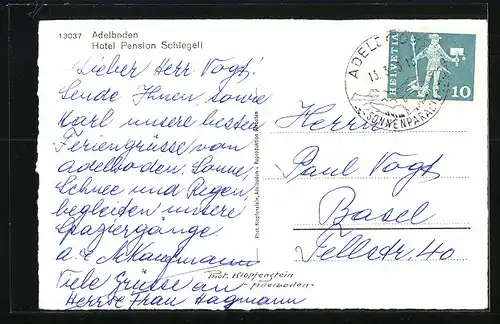 13037 Adelboden
Hotel Pension Schlegeli
Lieber Herr Vogt!
Sende Ihnen sowie
Karl unsere besten
Feriengrüsse von
Adelboden. Sonne,
Schnee und Regen,
begleiten unsere
Spaziergänge.
Viele Grüsse an
Herr & Frau Hagmann
Phot. Klopfenstein, Adelboden
Phot. Klopfenstein
Adelboden
ADELBODEN
SONNENPARADIES
HELVETIA
10
Herrn
Paul Vogt
Basel
Tellstr. 40